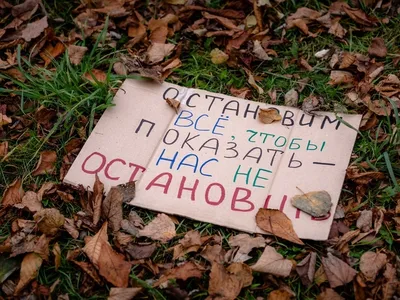 ОСТАНОВИМ
ВСЁ, ЧТОБЫ
ПОКАЗАТЬ —
НАС НЕ
ОСТАНОВИТЬ